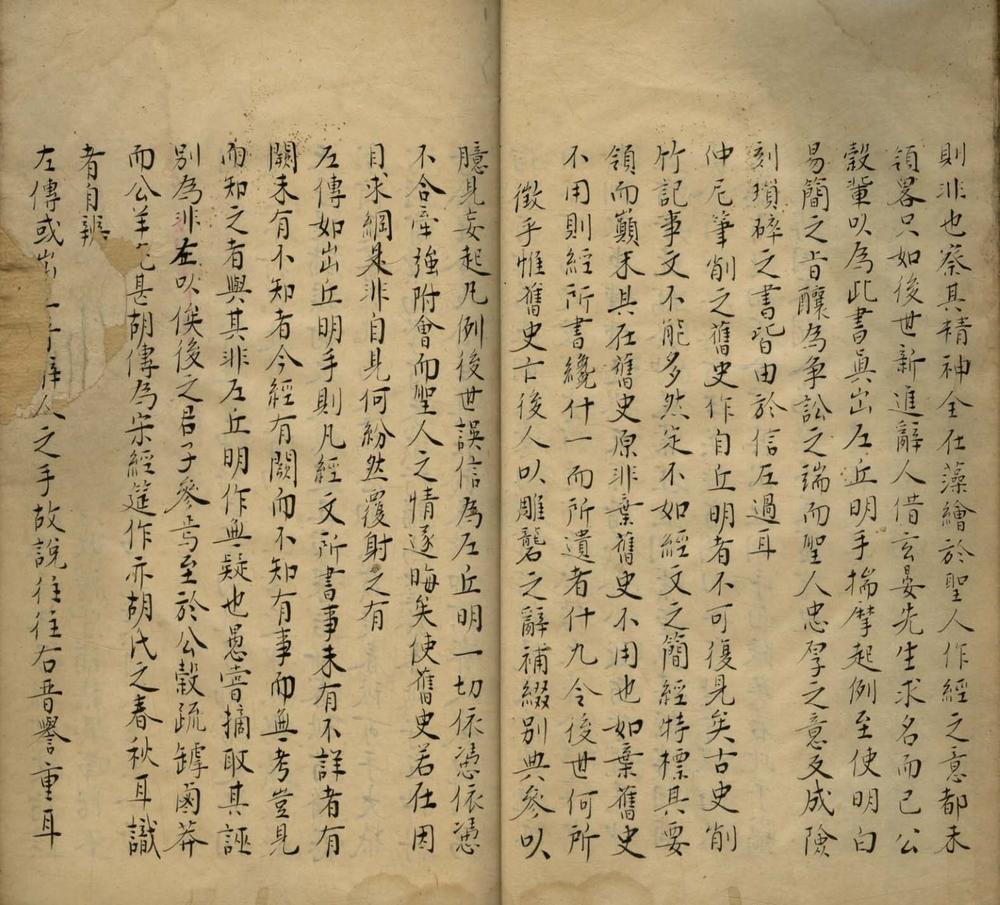 則非也察其精神全在藻繪於聖人作經之意都未
領畧只如後世新進辭人借玄晏先生求名而已公
穀輩以為此書真出左丘明手揣摩起例至使明白
易簡之旨釀為爭訟之端而聖人忠厚之意反成險
刻瑣碎之書皆由於信左過耳
仲尼筆削之舊史作自丘明者不可復見矣古史削
竹記事文不能多然定不如經文之簡經特標其要
領而顛末具在舊史原非棄舊史不用也如棄舊史
不用則經所書纔什一而所遺者什九令後世何所
徵乎惟舊史亡後人以雕礱之辭補綴別典參以
臆見妄起凡例後世誤信為左丘明一切依憑依憑
不合牽強附會而聖人之情遂晦矣使舊史若在因
目求綱是非自見何紛然覆射之有
左傳如出丘明手則凡經文所書事未有不詳者有
闕未有不知者今經有闕而不知有事而無考豈見
而知之者與其非左丘明作無疑也愚嘗摘取其誣
別為非左以俟後之君子參焉至於公穀疏罅鹵莽
而公羊甚胡傳為宋經筵作亦胡氏之春秋耳識
者自辨
左傳或出人之手故說往往右晉譽重耳